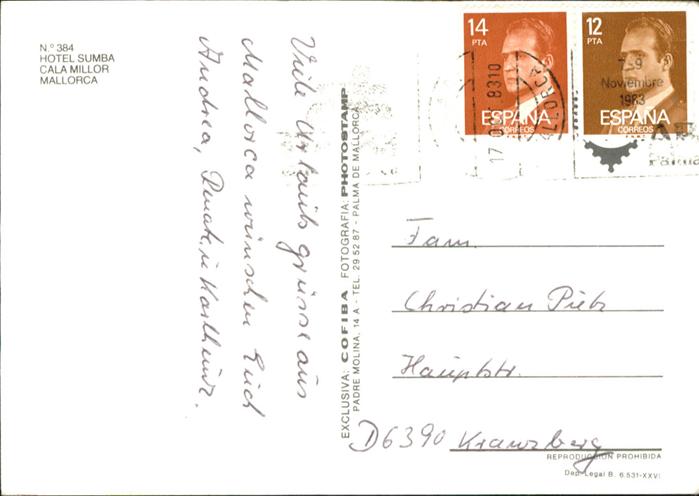 N.º 384
HOTEL SUMBA
CALA MILLOR
MALLORCA
Viele Urlaubsgrüsse aus
Mallorca wünschen Euch
Andrea, Renate u. Karlheinz.
EXCLUSIVA: COFIBA FOTOGRAFIA: PHOTOSTAMP
PADRE MOLINA, 14 A - TEL. 29 52 87 - PALMA DE MALLORCA
14
PTA
ESPAÑA
CORREOS
12
PTA
ESPAÑA
CORREOS
17 8310
Noviembre
1983
Fam.
Christian Pietz
Hauptstr.
D6390 Kransberg
REPRODUCCION PROHIBIDA
Dep. Legal B. 6.531-XXVI